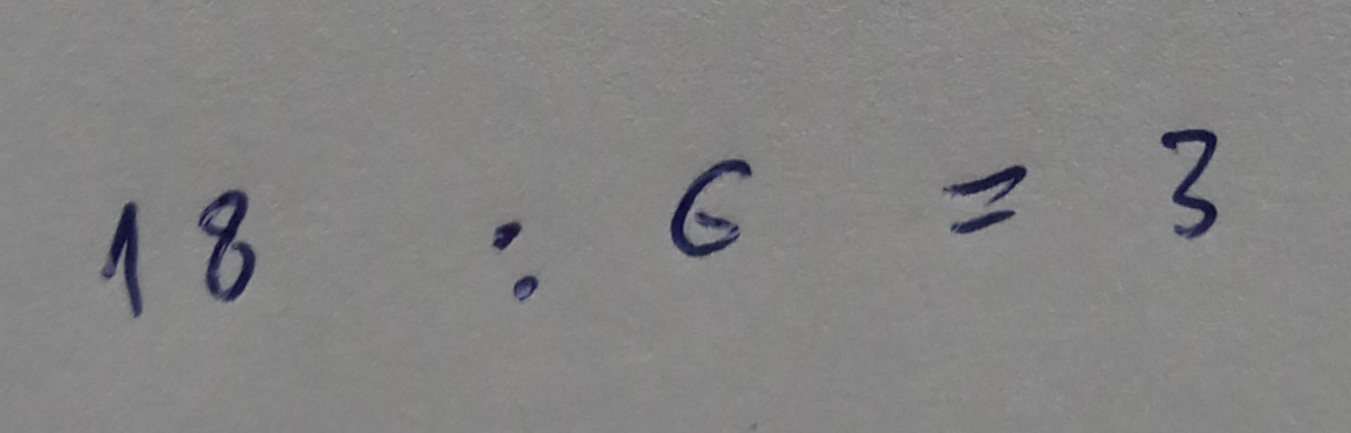 18 : 6 = 3